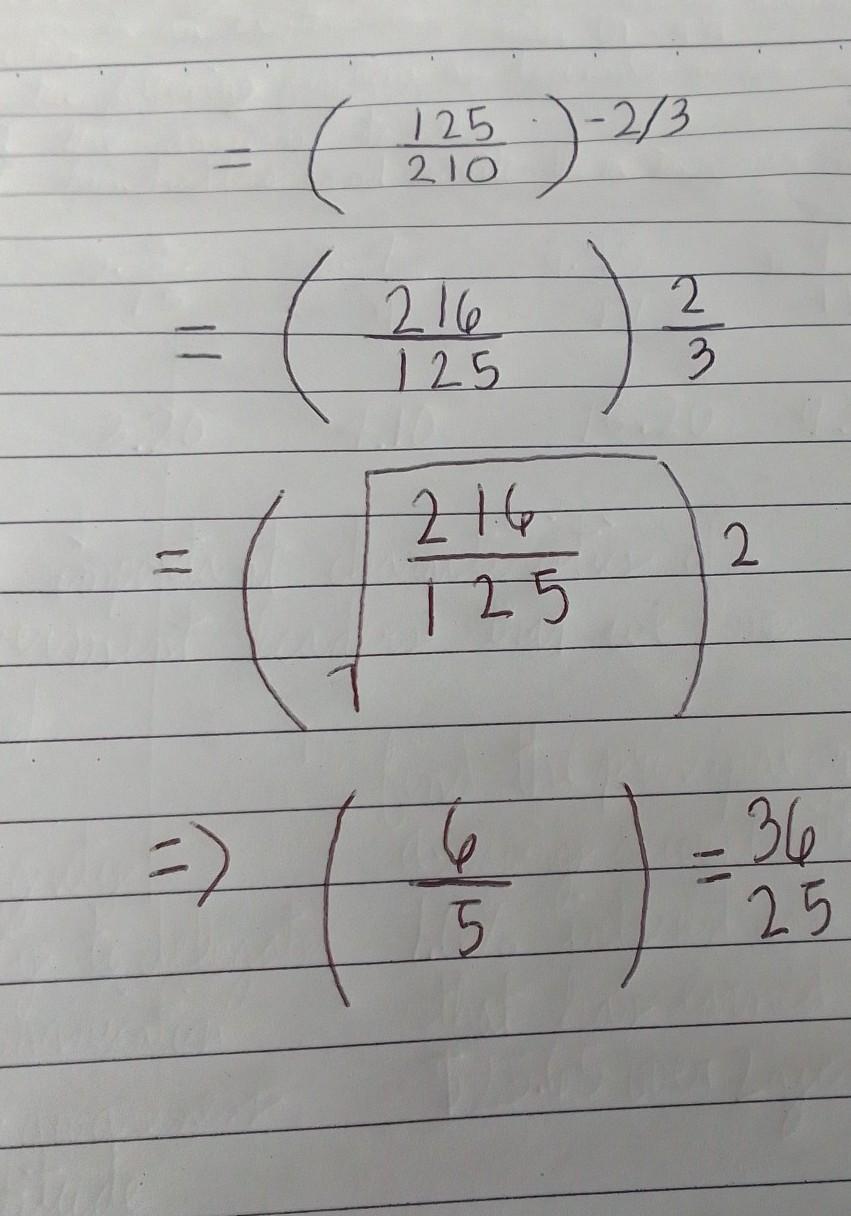 = (125/210)^-2/3
= (216/125) 2/3
= (√216/125) 2
=> (6/5) = 36/25